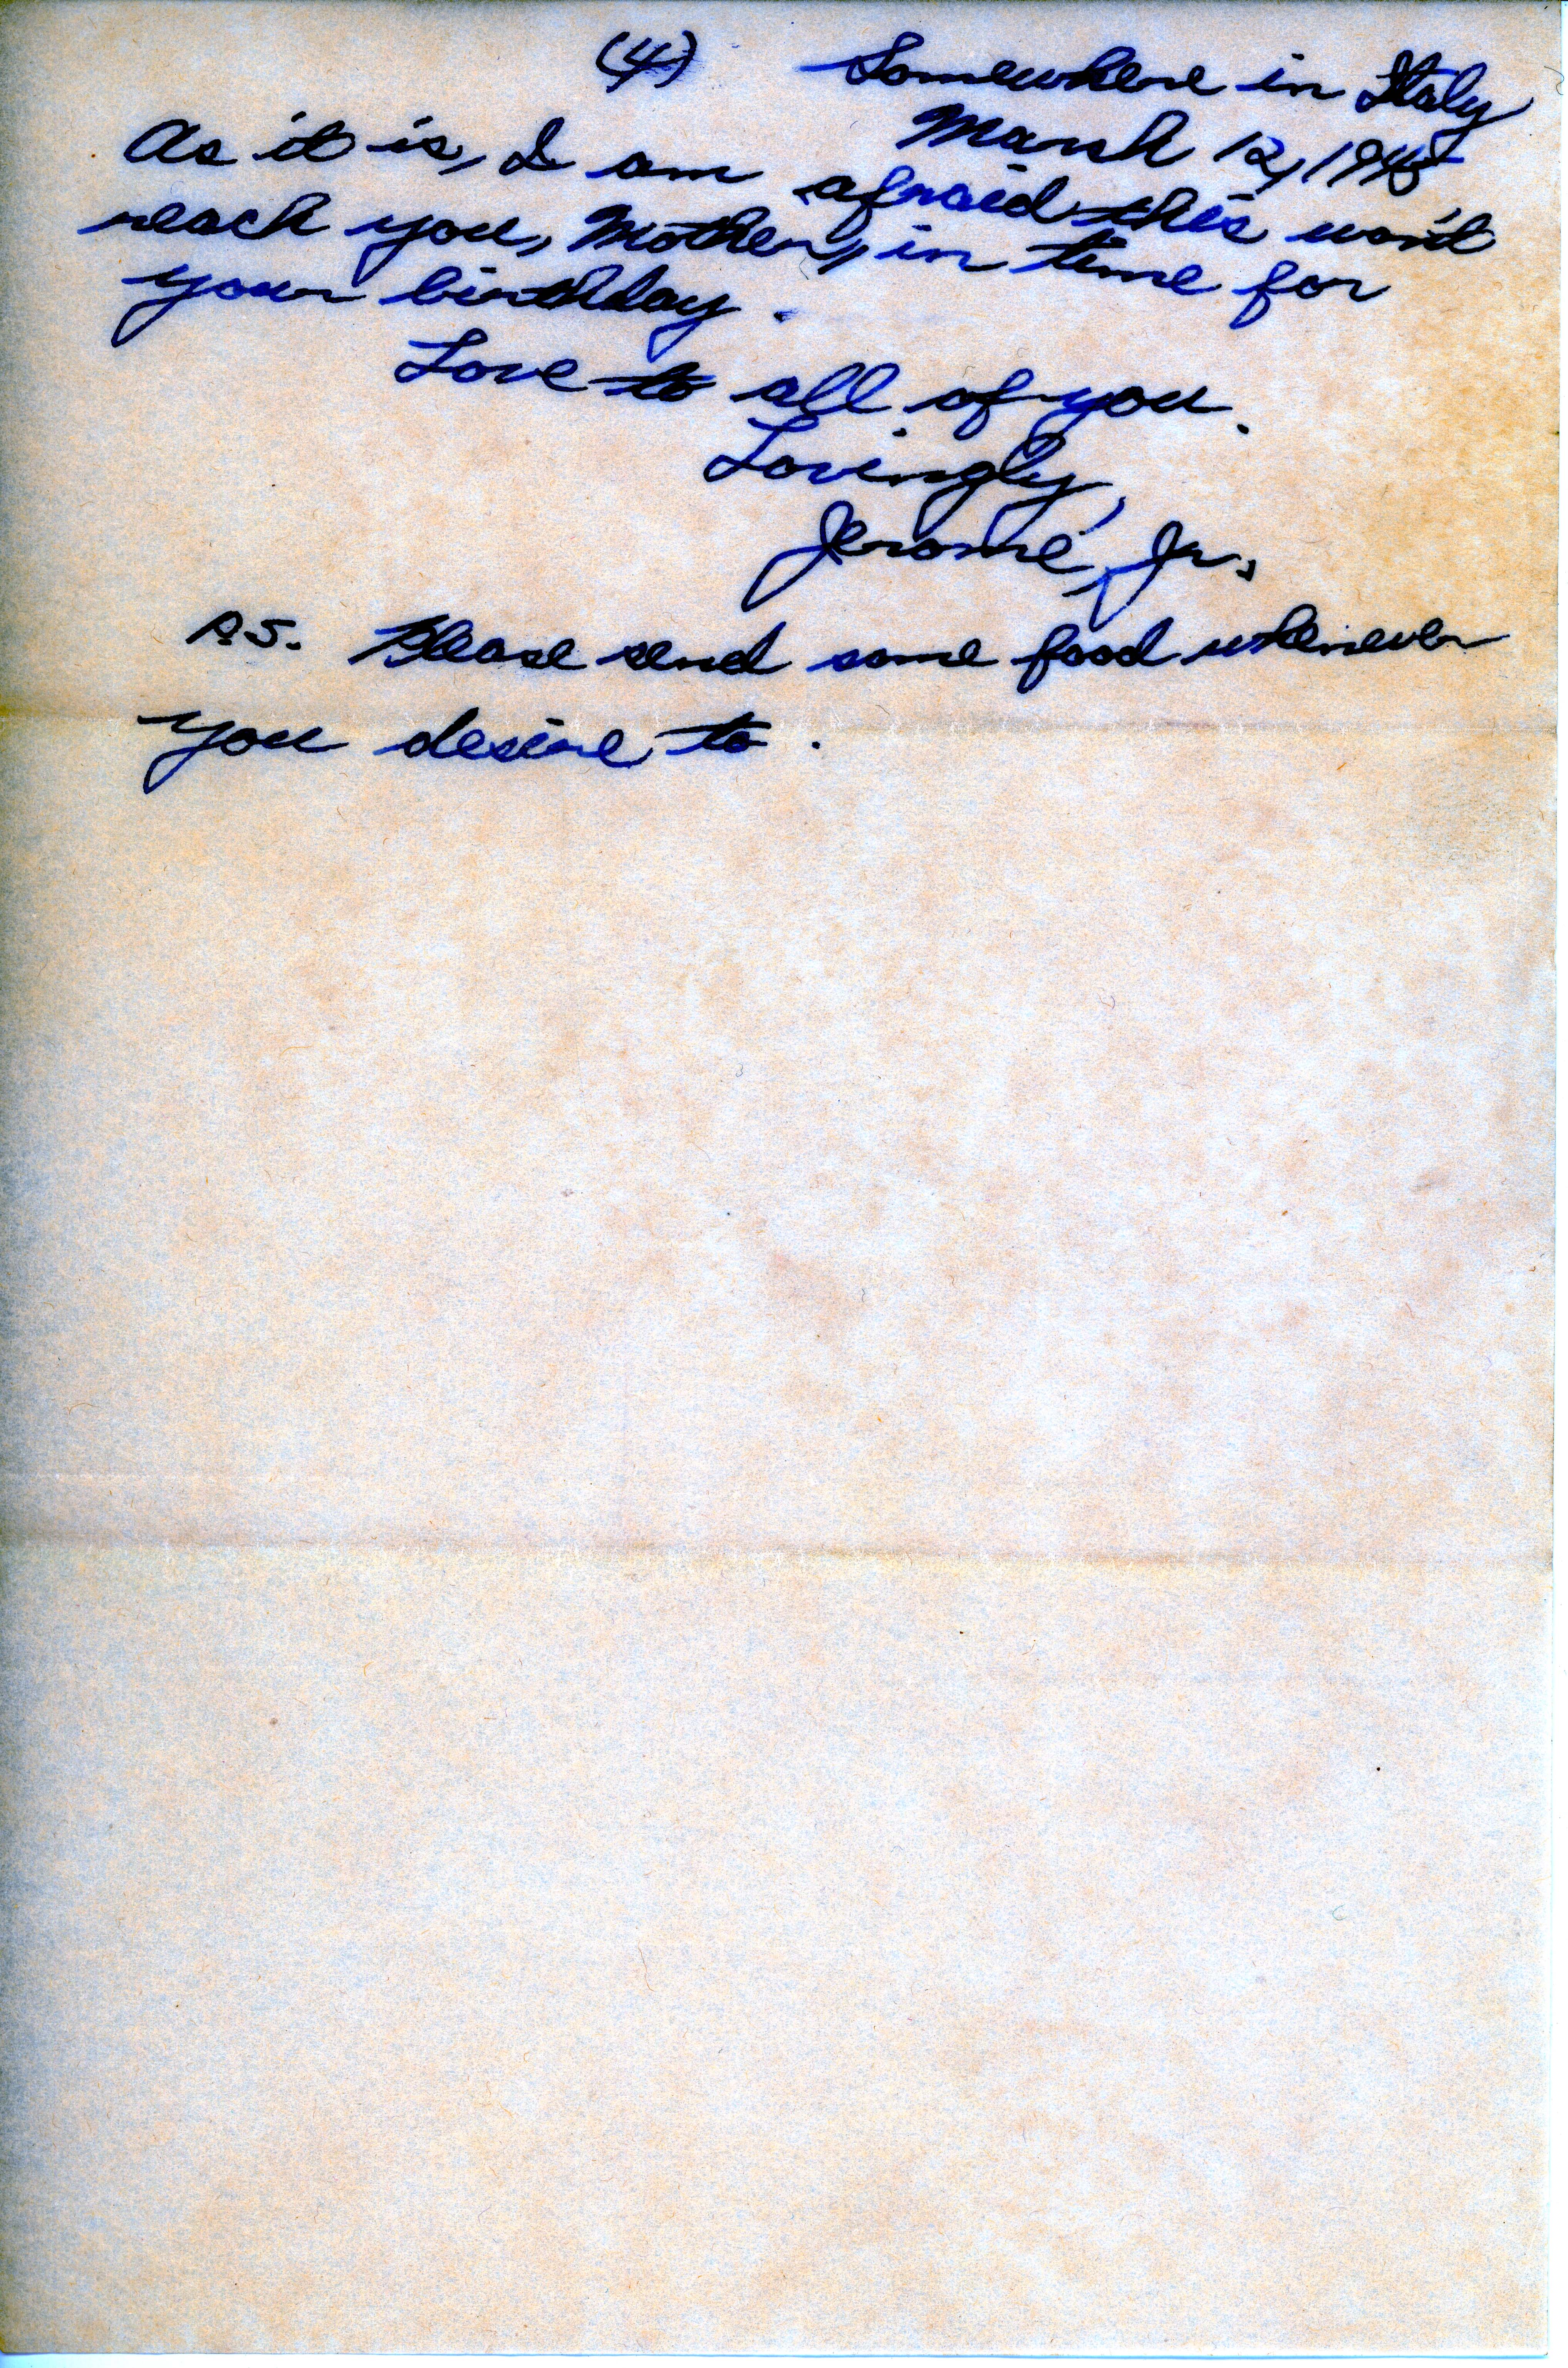 (4) Somewhere in Italy
March 12, 1945
As it is, I am afraid this won't
reach you, Mother, in time for
your birthday.
Love to all of you.
Lovingly,
Jerome, Jr.
P.S. Please send some food whenever
you desire to.